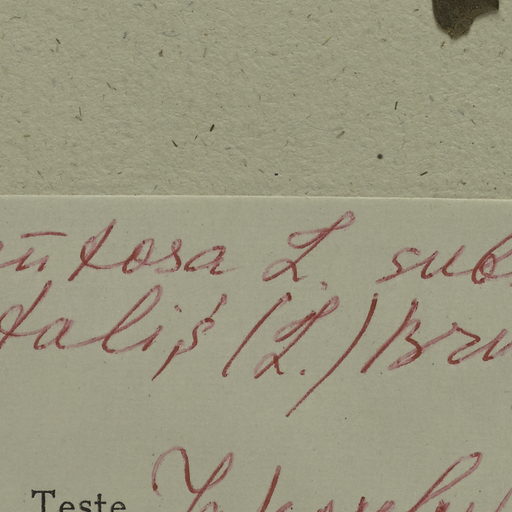 tosa L. sub
talis (L.) Bru
Teste